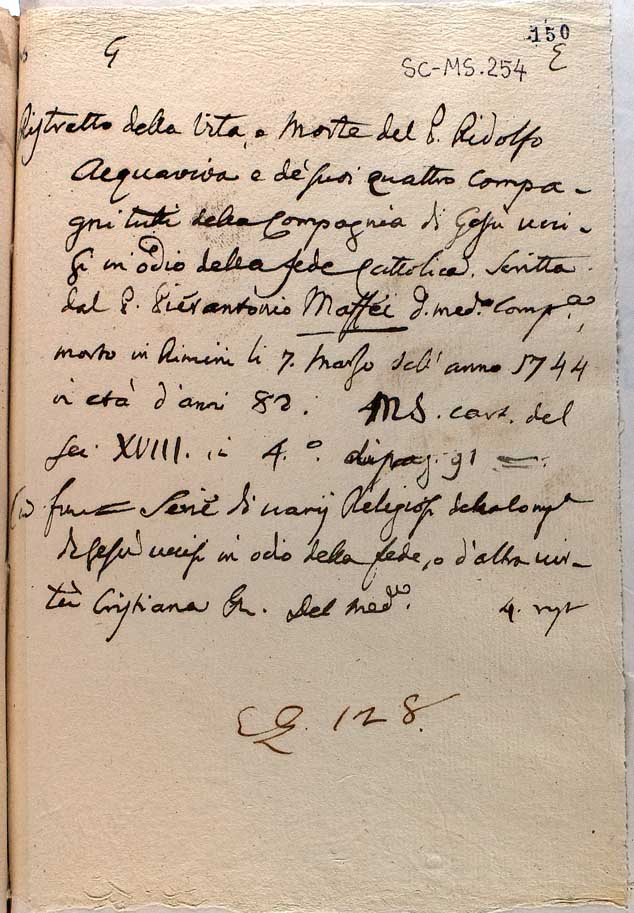 150
G SC-MS.254 E
Ristretto della Vita, e Morte del P. Ridolfo
Acquaviva e de' suoi quattro Compa-
gni tutti della Compagnia di Gesù ucci-
si in odio della fede Cattolica. Scritta
dal P. Pierantonio Maffei d. med.a Comp.a,
morto in Rimini li 7. Marzo dell'anno 1744
in età d'anni 82. MS. cart. del
sec. XVIII. in 4.o di pag. 91
In fine Serie di varij Religiosi della Comp
di Gesù uccisi in odio della fede, o d'altra vir-
tù Cristiana &c. Del med.o 4.
128.